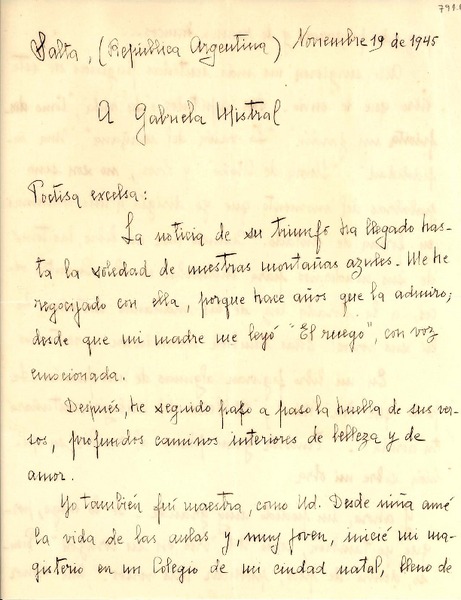 Salta, (República Argentina) Noviembre 19 de 1945
A Gabriela Mistral
Poetisa excelsa:
La noticia de su triunfo ha llegado has-
ta la soledad de nuestras montañas azules. Me he
regocijado con ella, porque hace años que la admiro;
desde que mi madre me leyó "El ruego", con voz
emocionada.
Después, he seguido paso a paso la huella de sus ver-
sos, profundos caminos interiores de belleza y de
amor.
Yo también fuí maestra, como Ud. Desde niña amé
la vida de las aulas y, muy joven, inicié mi ma-
gisterio en un Colegio de mi ciudad natal, lleno de